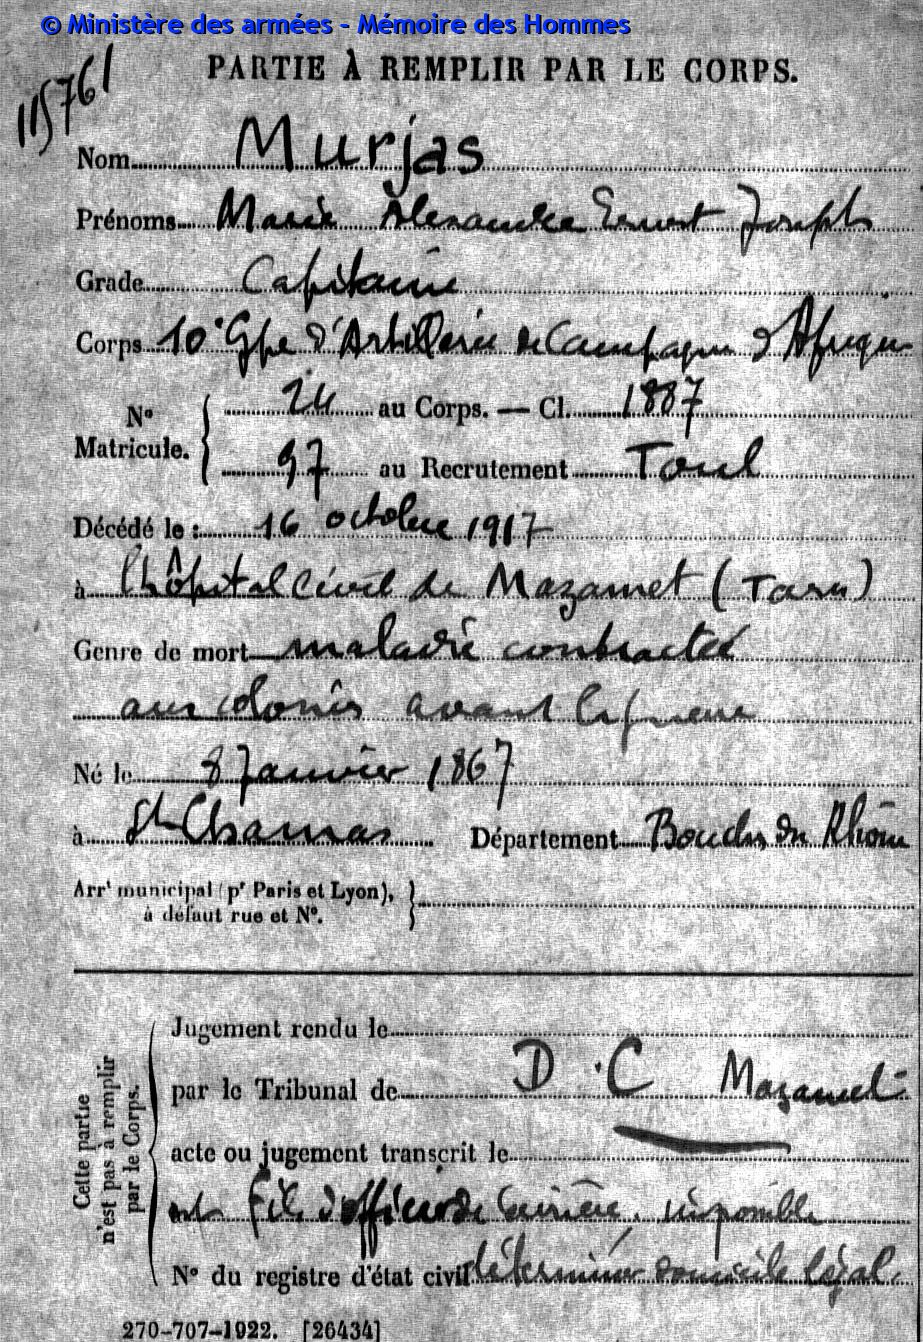 © Ministère des armées - Mémoire des Hommes
PARTIE À REMPLIR PAR LE CORPS.
115761
Nom Murjas
Prénoms Marie Alexandre Ernest Joseph
Grade Capitaine
Corps 10e Gpe d'Artillerie de Campagne d'Afrique
N° Matricule. { 24 au Corps. — Cl. 1887
97 au Recrutement Toul
Décédé le : 16 octobre 1917
à l'hôpital civil de Mazamet (Tarn)
Genre de mort maladie contractée
aux colonies avant la guerre
Né le 8 Janvier 1867
à St Chamas Département Bouches du Rhône
Arrt municipal (pr Paris et Lyon), }
à défaut rue et N°.
Cette partie n'est pas à remplir par le Corps.
Jugement rendu le
par le Tribunal de D.C Mazamet
acte ou jugement transcrit le
est fils d'officier de carrière, impossible
N° du registre d'état civil déterminer domicile légal.
270-707-1922. [26434]